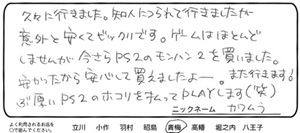 久々に行きました。知人につられて行きましたが
意外と安くてビックリです。ゲームはほとんど
しませんが今さらPS2のモンハン2を買いました。
安かったから安心して買えましたよー。また行きます!
ぶ厚いPS2のホコリをはらってPLAYします(笑)
ニックネーム カワムう
よく利用するお店を
○で囲んでください。 立川 小作 羽村 昭島 青梅 高幡 堀之内 八王子